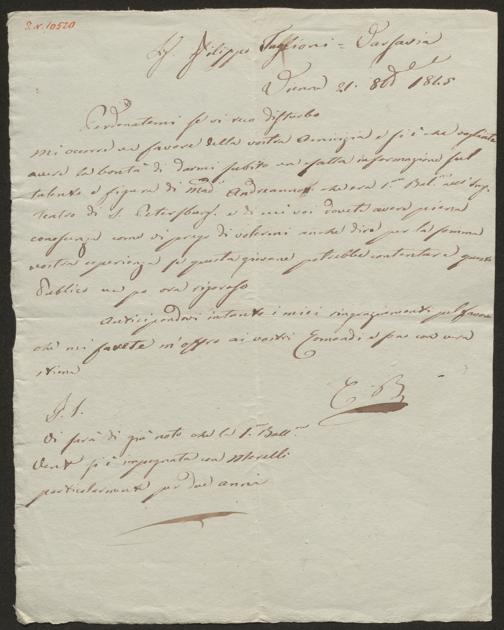 S.N. 10520
Sr. Filippo Taglioni = Varsavia
Vienna 21. 8bre 1845
Perdonatemi se vi reco disturbo
mi occorre un favore della vostra amicizia e si è che vogliate
avere la bontà di darmi subito un esatta informazione sul
talento e figura di Mad. Andreanow che ora 1ma Bal.na nell' Imp.
Teatro di S. Petersburg. e di cui voi dovete avere piena
conoscenza come vi prego di volermi anche dire per la somma
vostra esperienza se questa giovane potrebbe contentare questo
Publico un po ora rigoroso
Anticipandovi intanto i miei ringraziamenti pel favore
che mi farete m'offro ai vostri Comandi e sono con vera
stima
C. B.
P. S.
Vi sarà di già noto che la 1ma Ball.na
si è impegnata con Merelli
particolarmente per due anni